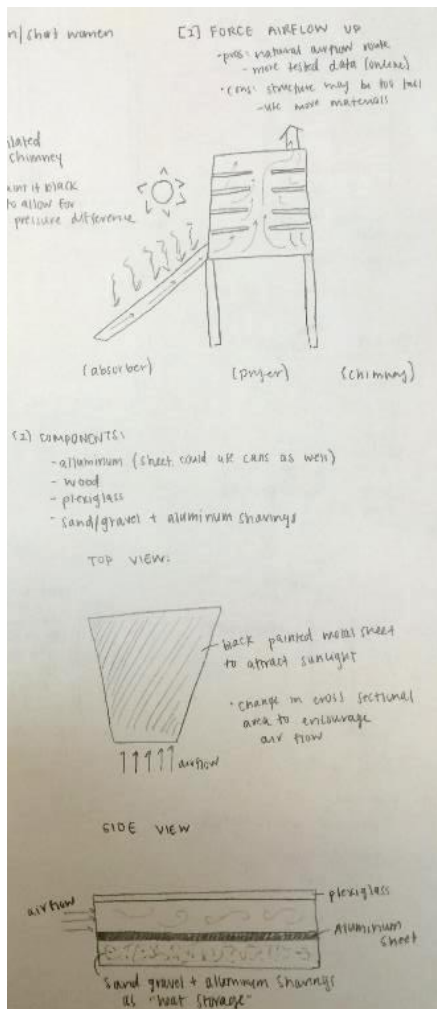 n/short women
[1] FORCE AIRFLOW UP
- pros: natural airflow route
- more tested data (online)
- cons: structure may be too tall
- use more materials
ulated
chimney
aint it black
to allow for
pressure difference
(absorber)
(dryer)
(chimney)
(2) COMPONENTS:
- alluminium (sheet, could use cans as well)
- wood
- plexiglass
- sand/gravel + aluminum shavings
TOP VIEW:
back painted metal sheet
to attract sunlight
• change in cross sectional
area to encourage
air flow
airflow
SIDE VIEW
plexiglass
airflow
Aluminum
sheet
sand gravel + aluminum shavings
as "heat storage"